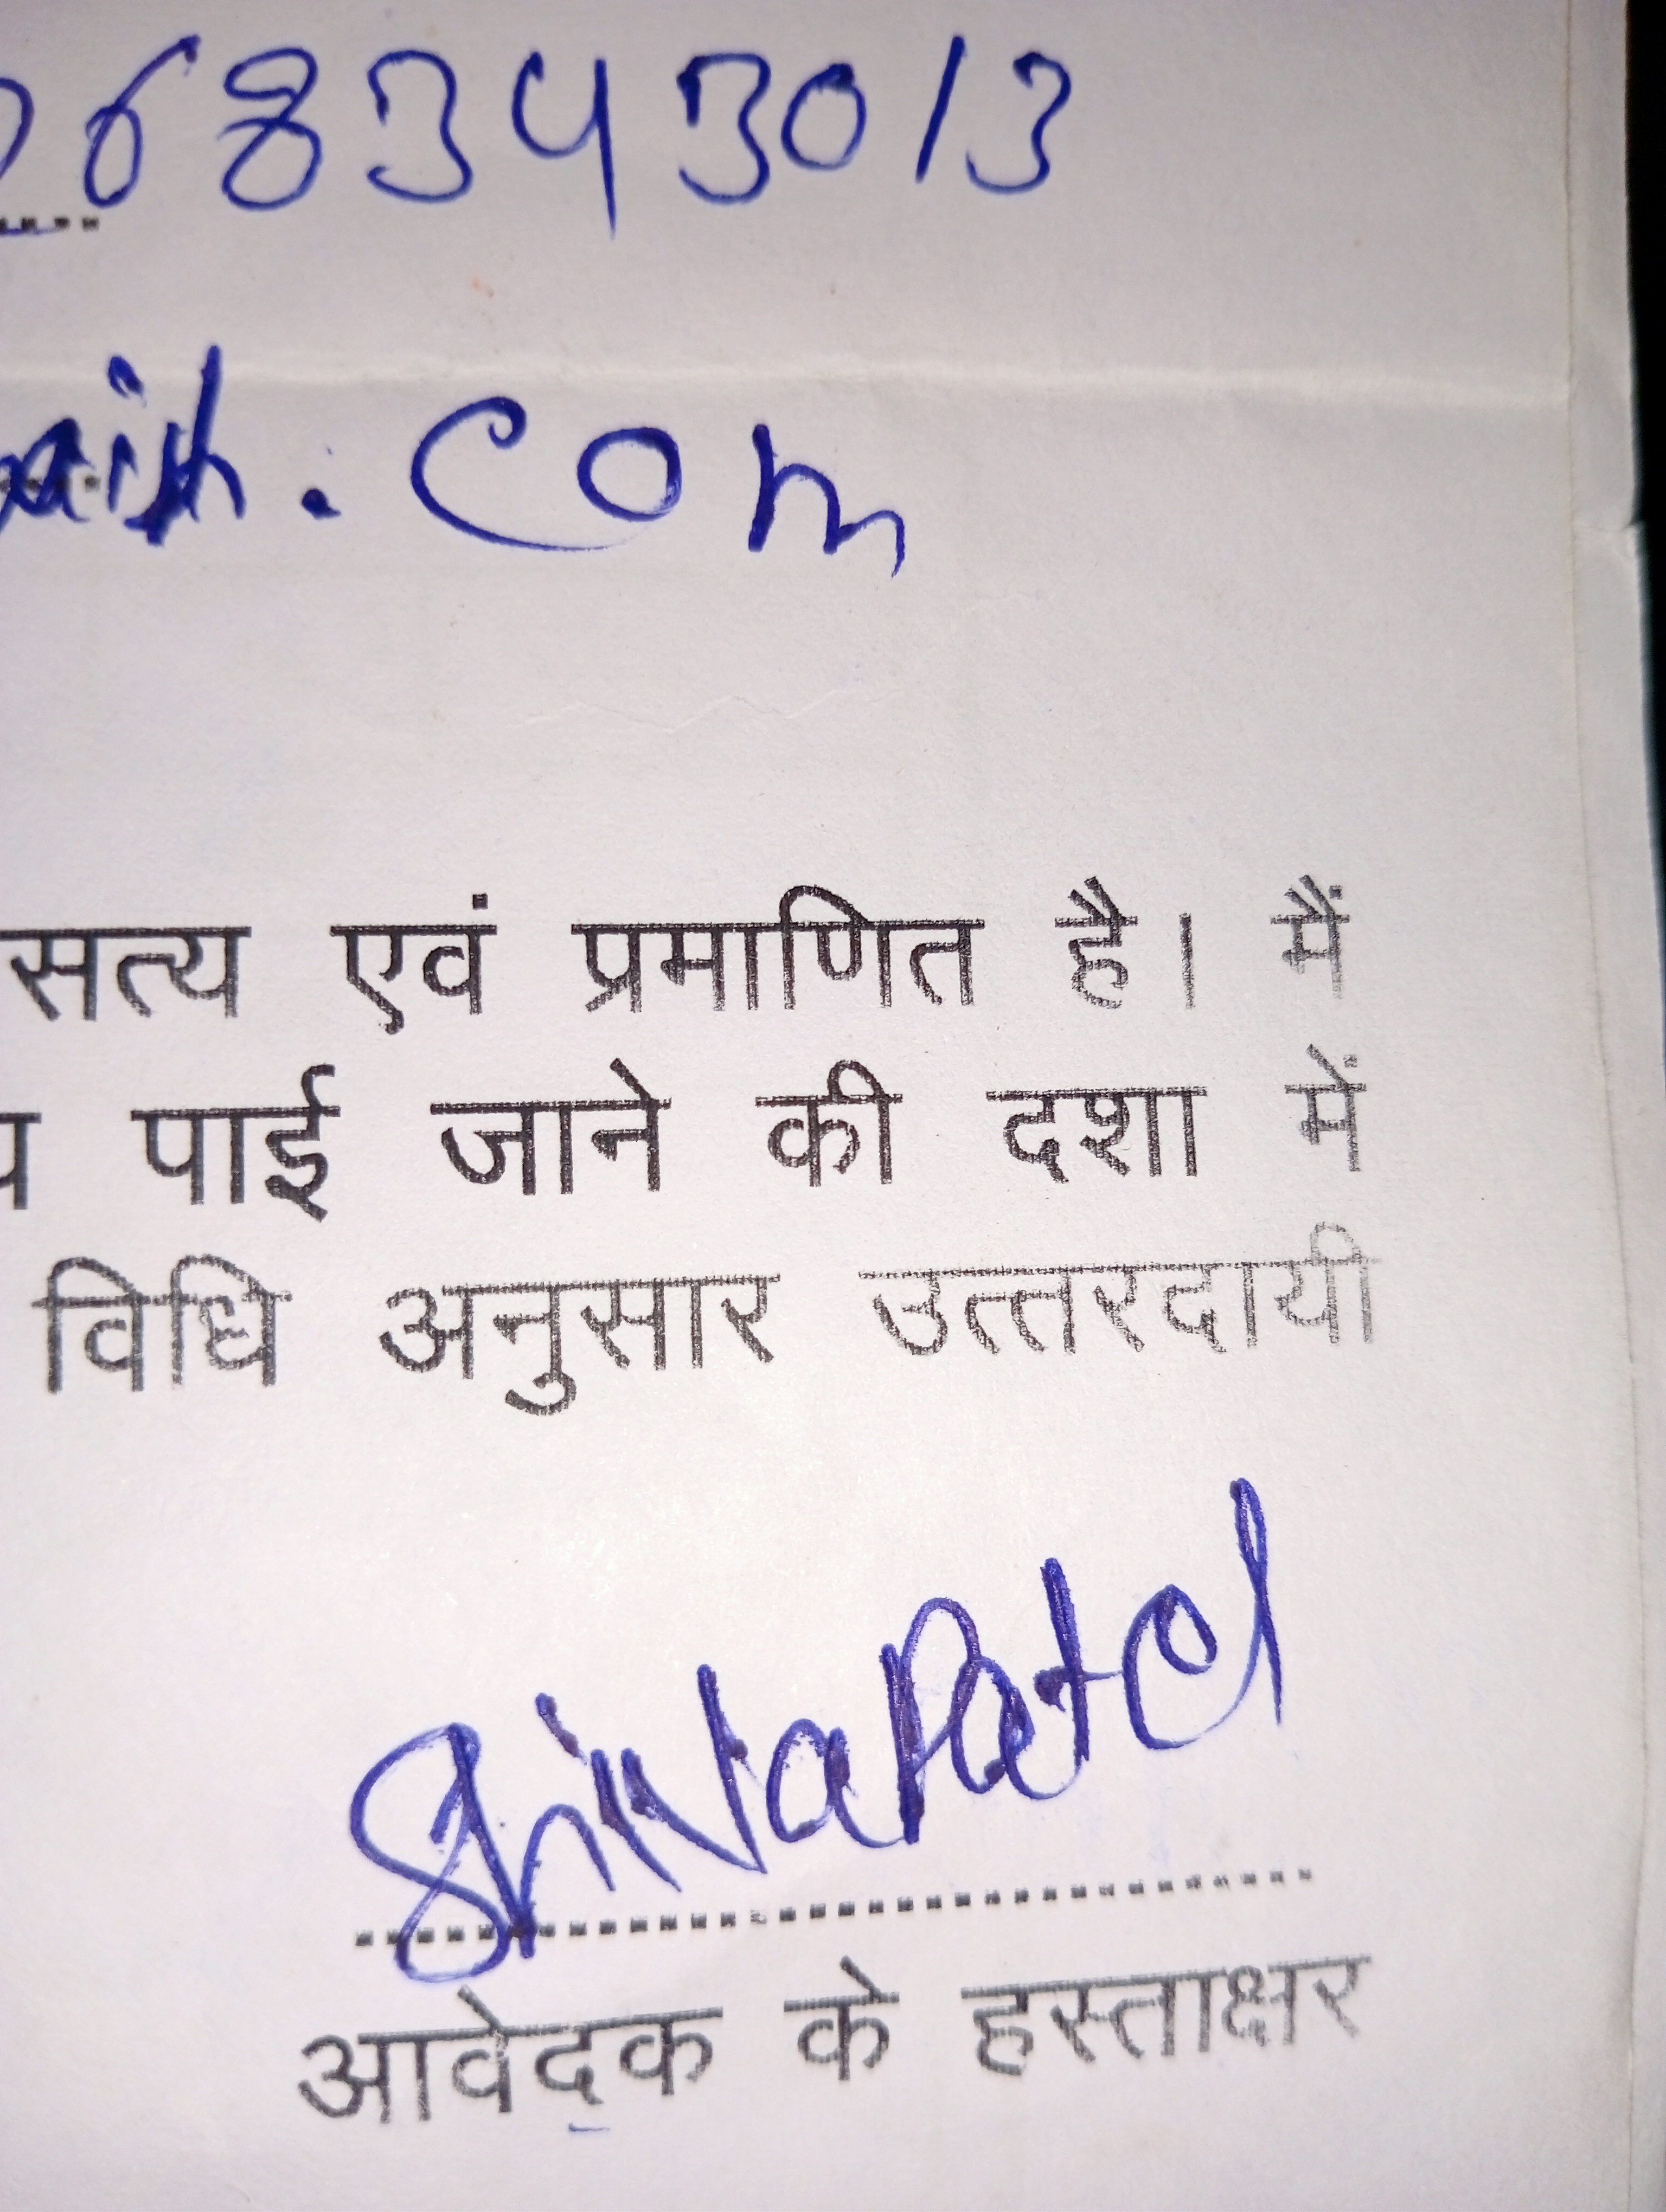 68343013
.com
सत्य एवं प्रमाणित है। मैं
पाई जाने की दशा में
विधि अनुसार उत्तरदायी
Shiva Patel
आवेदक के हस्ताक्षर